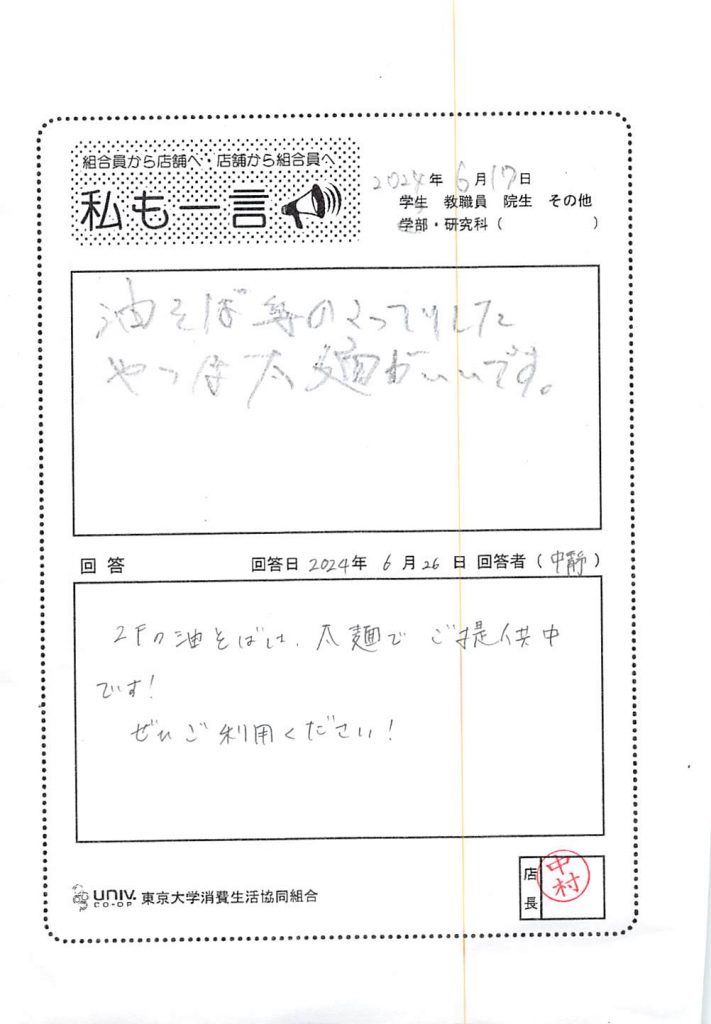 組合員から店舗へ 店舗から組合員へ
私も一言
2024年6月17日
学生 教職員 院生 その他
学部・研究科( )
油そば等のこってりした
やつは太麺がいいです。
回答 回答日 2024年 6月26日 回答者(中静)
2Fの油そばは、太麺でご提供中
です!
ぜひご利用ください!
UNIV. CO-OP 東京大学消費生活協同組合
店長 中村